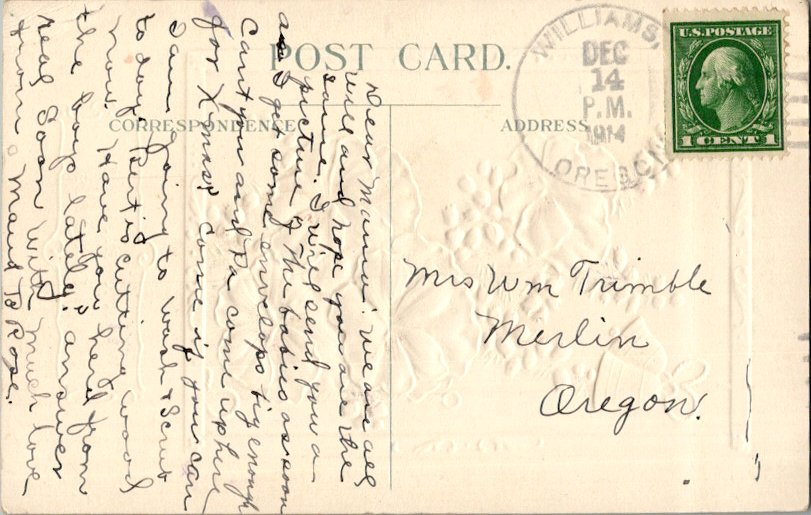 POST CARD.
CORRESPONDENCE
ADDRESS
WILLIAMS,
DEC
14
P.M.
1914
OREGON
U.S. POSTAGE
1 CENT 1
Mrs Wm Trimble
Merlin
Oregon.
Dear Mama: we are all
well and hope you are the
same. I will send you a
picture of the babies as soon
as I get some envelops big enough
Cant you and Pa come up here
for Xmas? come if you can
I am going to wash & scrub
to day. Bert is cutting wood
now. Have you herd from
the boys lately? answer
real soon with much love
from Maud To Rose.